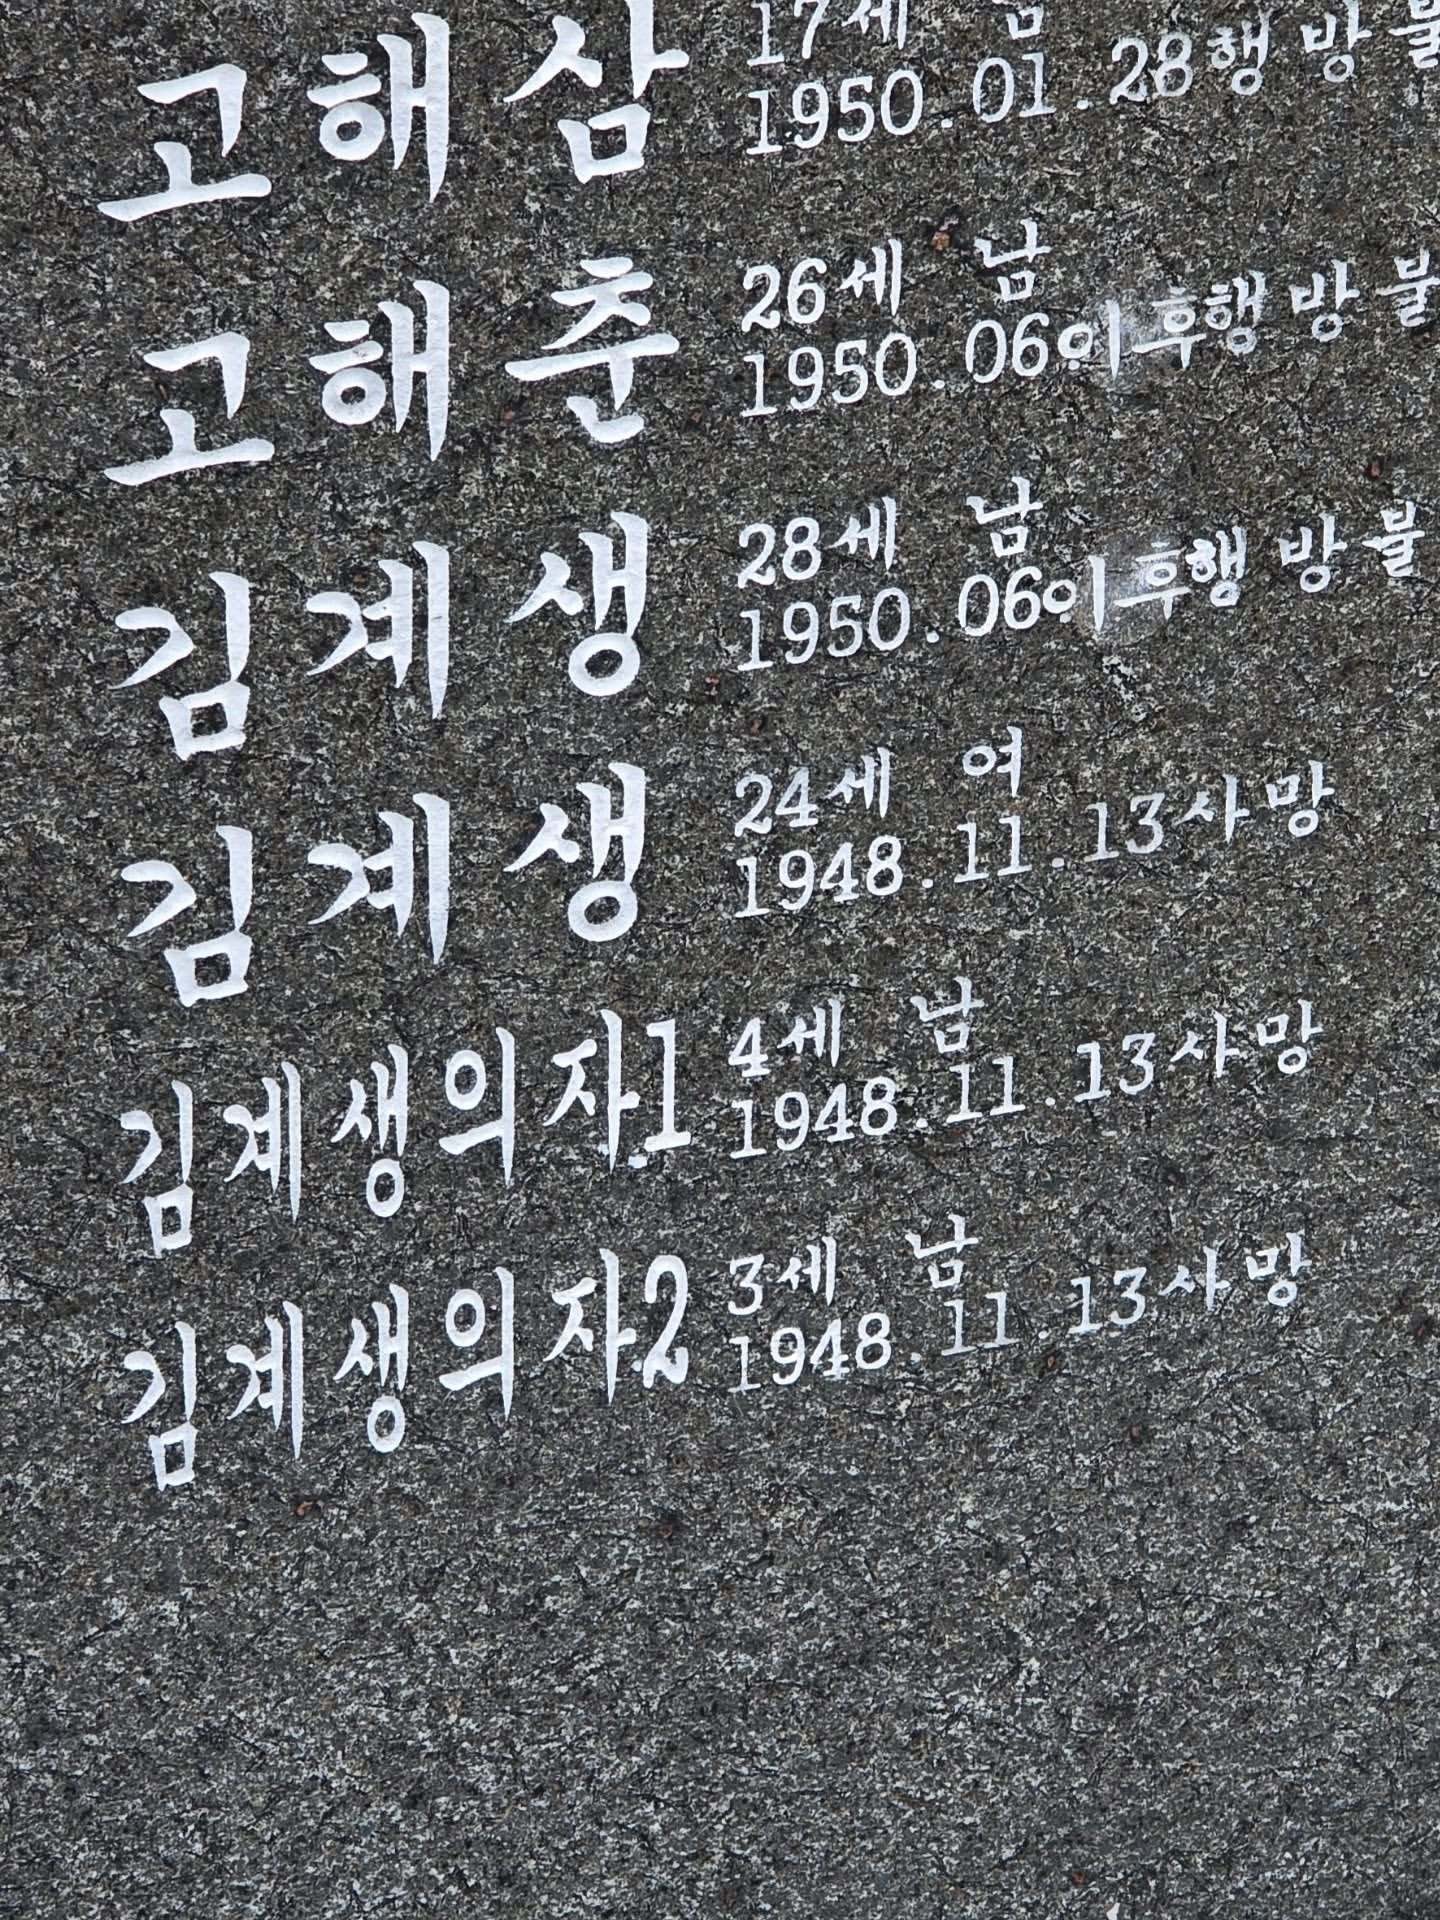 고해삼 17세 남
1950.01.28행방불
고해춘 26세 남
1950.06이후행방불
김계생 28세 남
1950.06이후행방불
김계생 24세 여
1948.11.13사망
김계생의자1 4세 남
1948.11.13사망
김계생의자2 3세 남
1948.11.13사망